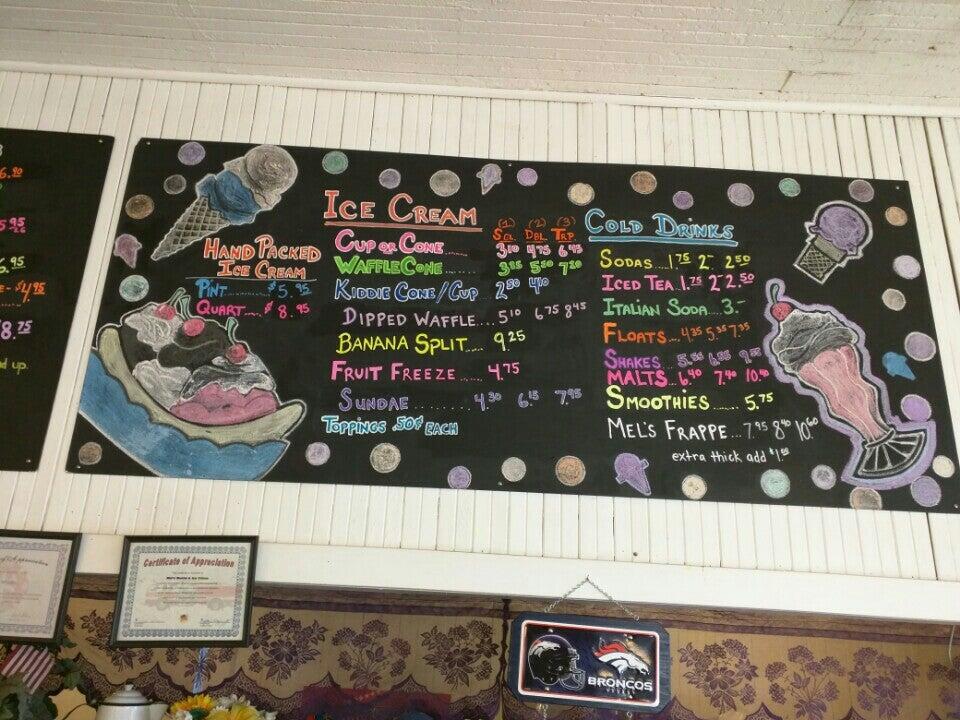 6.90
5.95
6.95
8.75
HAND PACKED
ICE CREAM
PINT $5.95
QUART $8.95
ICE CREAM
(1) (2) (3)
SGL DBL TRP
CUP OR CONE 3.10 4.75 6.45
WAFFLE CONE 3.85 5.50 7.20
KIDDIE CONE/CUP 2.50 4.10
DIPPED WAFFLE 5.10 6.75 8.45
BANANA SPLIT 9.25
FRUIT FREEZE 4.75
SUNDAE 4.30 6.15 7.95
TOPPINGS .50¢ EACH
COLD DRINKS
SODAS 1.75 2 2.50
ICED TEA 1.75 2 2.50
ITALIAN SODA 3.-
FLOATS 4.35 5.35 7.35
SHAKES 5.55 6.55 9.55
MALTS 6.40 7.40 10.40
SMOOTHIES 5.75
MEL'S FRAPPE 7.95 8.40 10.60
extra thick add $1.50
Certificate of Appreciation
BRONCOS